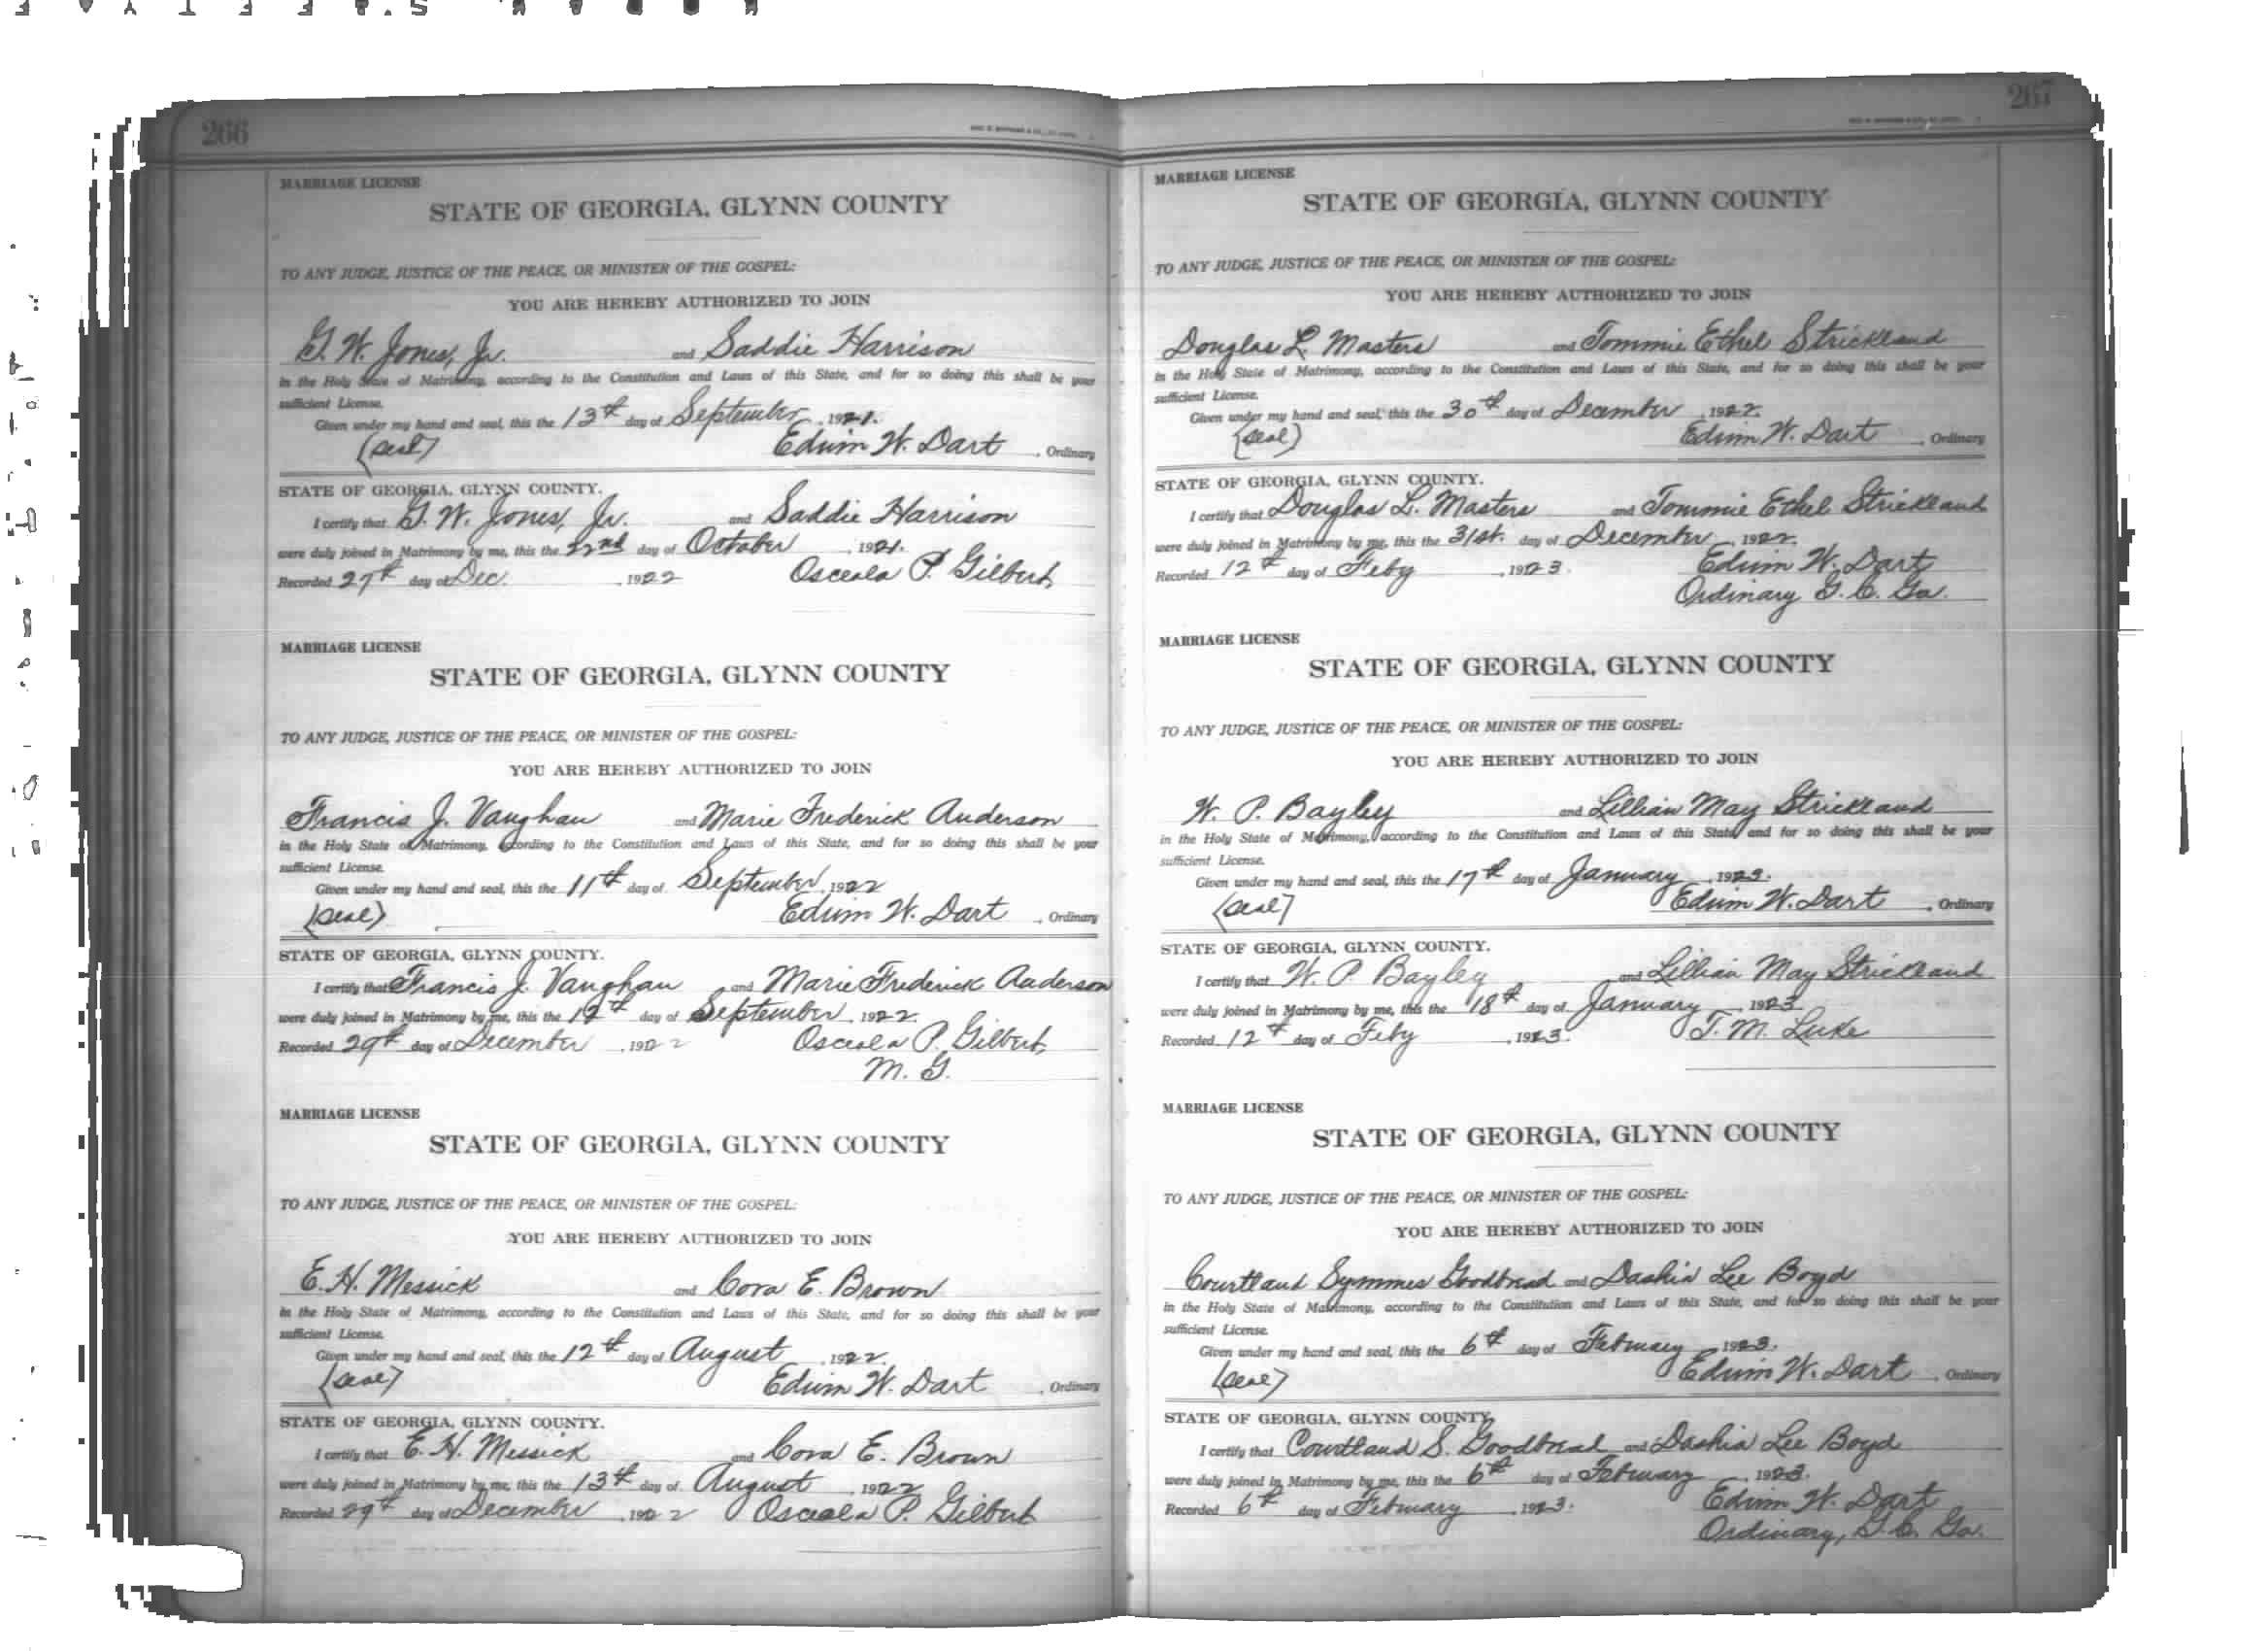 266
MARRIAGE LICENSE
STATE OF GEORGIA, GLYNN COUNTY
TO ANY JUDGE, JUSTICE OF THE PEACE, OR MINISTER OF THE GOSPEL:
YOU ARE HEREBY AUTHORIZED TO JOIN
G. W. Jones, Jr. and Saddie Harrison
in the Holy State of Matrimony, according to the Constitution and Laws of this State, and for so doing this shall be your
sufficient License.
Given under my hand and seal, this the 13th day of September, 1921.
(seal) Edwin W. Dart, Ordinary
STATE OF GEORGIA, GLYNN COUNTY.
I certify that G. W. Jones, Jr. and Saddie Harrison
were duly joined in Matrimony by me, this the 22nd day of October, 1921.
Recorded 27th day of Dec., 1922 Osceola P. Gilbert,
MARRIAGE LICENSE
STATE OF GEORGIA, GLYNN COUNTY
TO ANY JUDGE, JUSTICE OF THE PEACE, OR MINISTER OF THE GOSPEL:
YOU ARE HEREBY AUTHORIZED TO JOIN
Francis J. Vaughan and Marie Frederick Anderson
in the Holy State of Matrimony, according to the Constitution and Laws of this State, and for so doing this shall be your
sufficient License.
Given under my hand and seal, this the 11th day of September, 1922
(seal) Edwin W. Dart, Ordinary
STATE OF GEORGIA, GLYNN COUNTY.
I certify that Francis J. Vaughan and Marie Frederick Anderson
were duly joined in Matrimony by me, this the 12th day of September, 1922.
Recorded 29th day of December, 1922 Osceola P. Gilbert,
M. G.
MARRIAGE LICENSE
STATE OF GEORGIA, GLYNN COUNTY
TO ANY JUDGE, JUSTICE OF THE PEACE, OR MINISTER OF THE GOSPEL:
YOU ARE HEREBY AUTHORIZED TO JOIN
E. H. Messick and Cora E. Brown
in the Holy State of Matrimony, according to the Constitution and Laws of this State, and for so doing this shall be your
sufficient License.
Given under my hand and seal, this the 12th day of August, 1922.
(seal) Edwin W. Dart, Ordinary
STATE OF GEORGIA, GLYNN COUNTY.
I certify that E. H. Messick and Cora E. Brown
were duly joined in Matrimony by me, this the 13th day of August, 1922
Recorded 29th day of December, 1922 Osceola P. Gilbert
267
MARRIAGE LICENSE
STATE OF GEORGIA, GLYNN COUNTY
TO ANY JUDGE, JUSTICE OF THE PEACE, OR MINISTER OF THE GOSPEL:
YOU ARE HEREBY AUTHORIZED TO JOIN
Douglas L. Masters and Tommie Ethel Strickland
in the Holy State of Matrimony, according to the Constitution and Laws of this State, and for so doing this shall be your
sufficient License.
Given under my hand and seal, this the 30th day of December, 1922.
(seal) Edwin W. Dart, Ordinary
STATE OF GEORGIA, GLYNN COUNTY.
I certify that Douglas L. Masters and Tommie Ethel Strickland
were duly joined in Matrimony by me, this the 31st. day of December, 1922.
Recorded 12th day of Feby, 1923. Edwin W. Dart
Ordinary G. C. Ga.
MARRIAGE LICENSE
STATE OF GEORGIA, GLYNN COUNTY
TO ANY JUDGE, JUSTICE OF THE PEACE, OR MINISTER OF THE GOSPEL:
YOU ARE HEREBY AUTHORIZED TO JOIN
W. P. Bayley and Lillian May Strickland
in the Holy State of Matrimony, according to the Constitution and Laws of this State, and for so doing this shall be your
sufficient License.
Given under my hand and seal, this the 17th day of January, 1923.
(seal) Edwin W. Dart, Ordinary
STATE OF GEORGIA, GLYNN COUNTY.
I certify that W. P. Bayley and Lillian May Strickland
were duly joined in Matrimony by me, this the 18th day of January, 1923
Recorded 12th day of Feby, 1923. T. M. Luke
MARRIAGE LICENSE
STATE OF GEORGIA, GLYNN COUNTY
TO ANY JUDGE, JUSTICE OF THE PEACE, OR MINISTER OF THE GOSPEL:
YOU ARE HEREBY AUTHORIZED TO JOIN
Courtland Symmes Goodbread and Dashia Lee Boyd
in the Holy State of Matrimony, according to the Constitution and Laws of this State, and for so doing this shall be your
sufficient License.
Given under my hand and seal, this the 6th day of February, 1923.
(seal) Edwin W. Dart, Ordinary
STATE OF GEORGIA, GLYNN COUNTY.
I certify that Courtland S. Goodbread and Dashia Lee Boyd
were duly joined in Matrimony by me, this the 6th day of February, 1923.
Recorded 6th day of February, 1923. Edwin W. Dart
Ordinary, G. C. Ga.